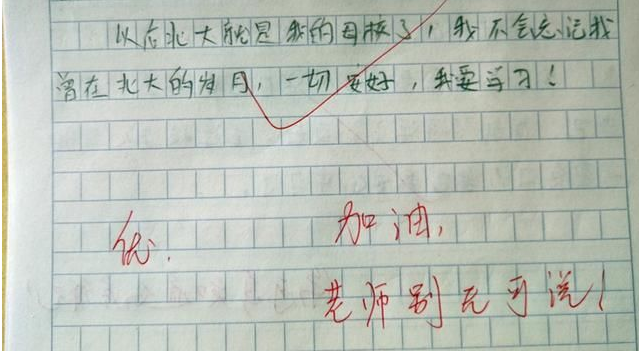 以后北大就是我的母校了，我不会忘记我
曾在北大的岁月，一切安好，我要学习！
优.
加油，
老师别无可说！